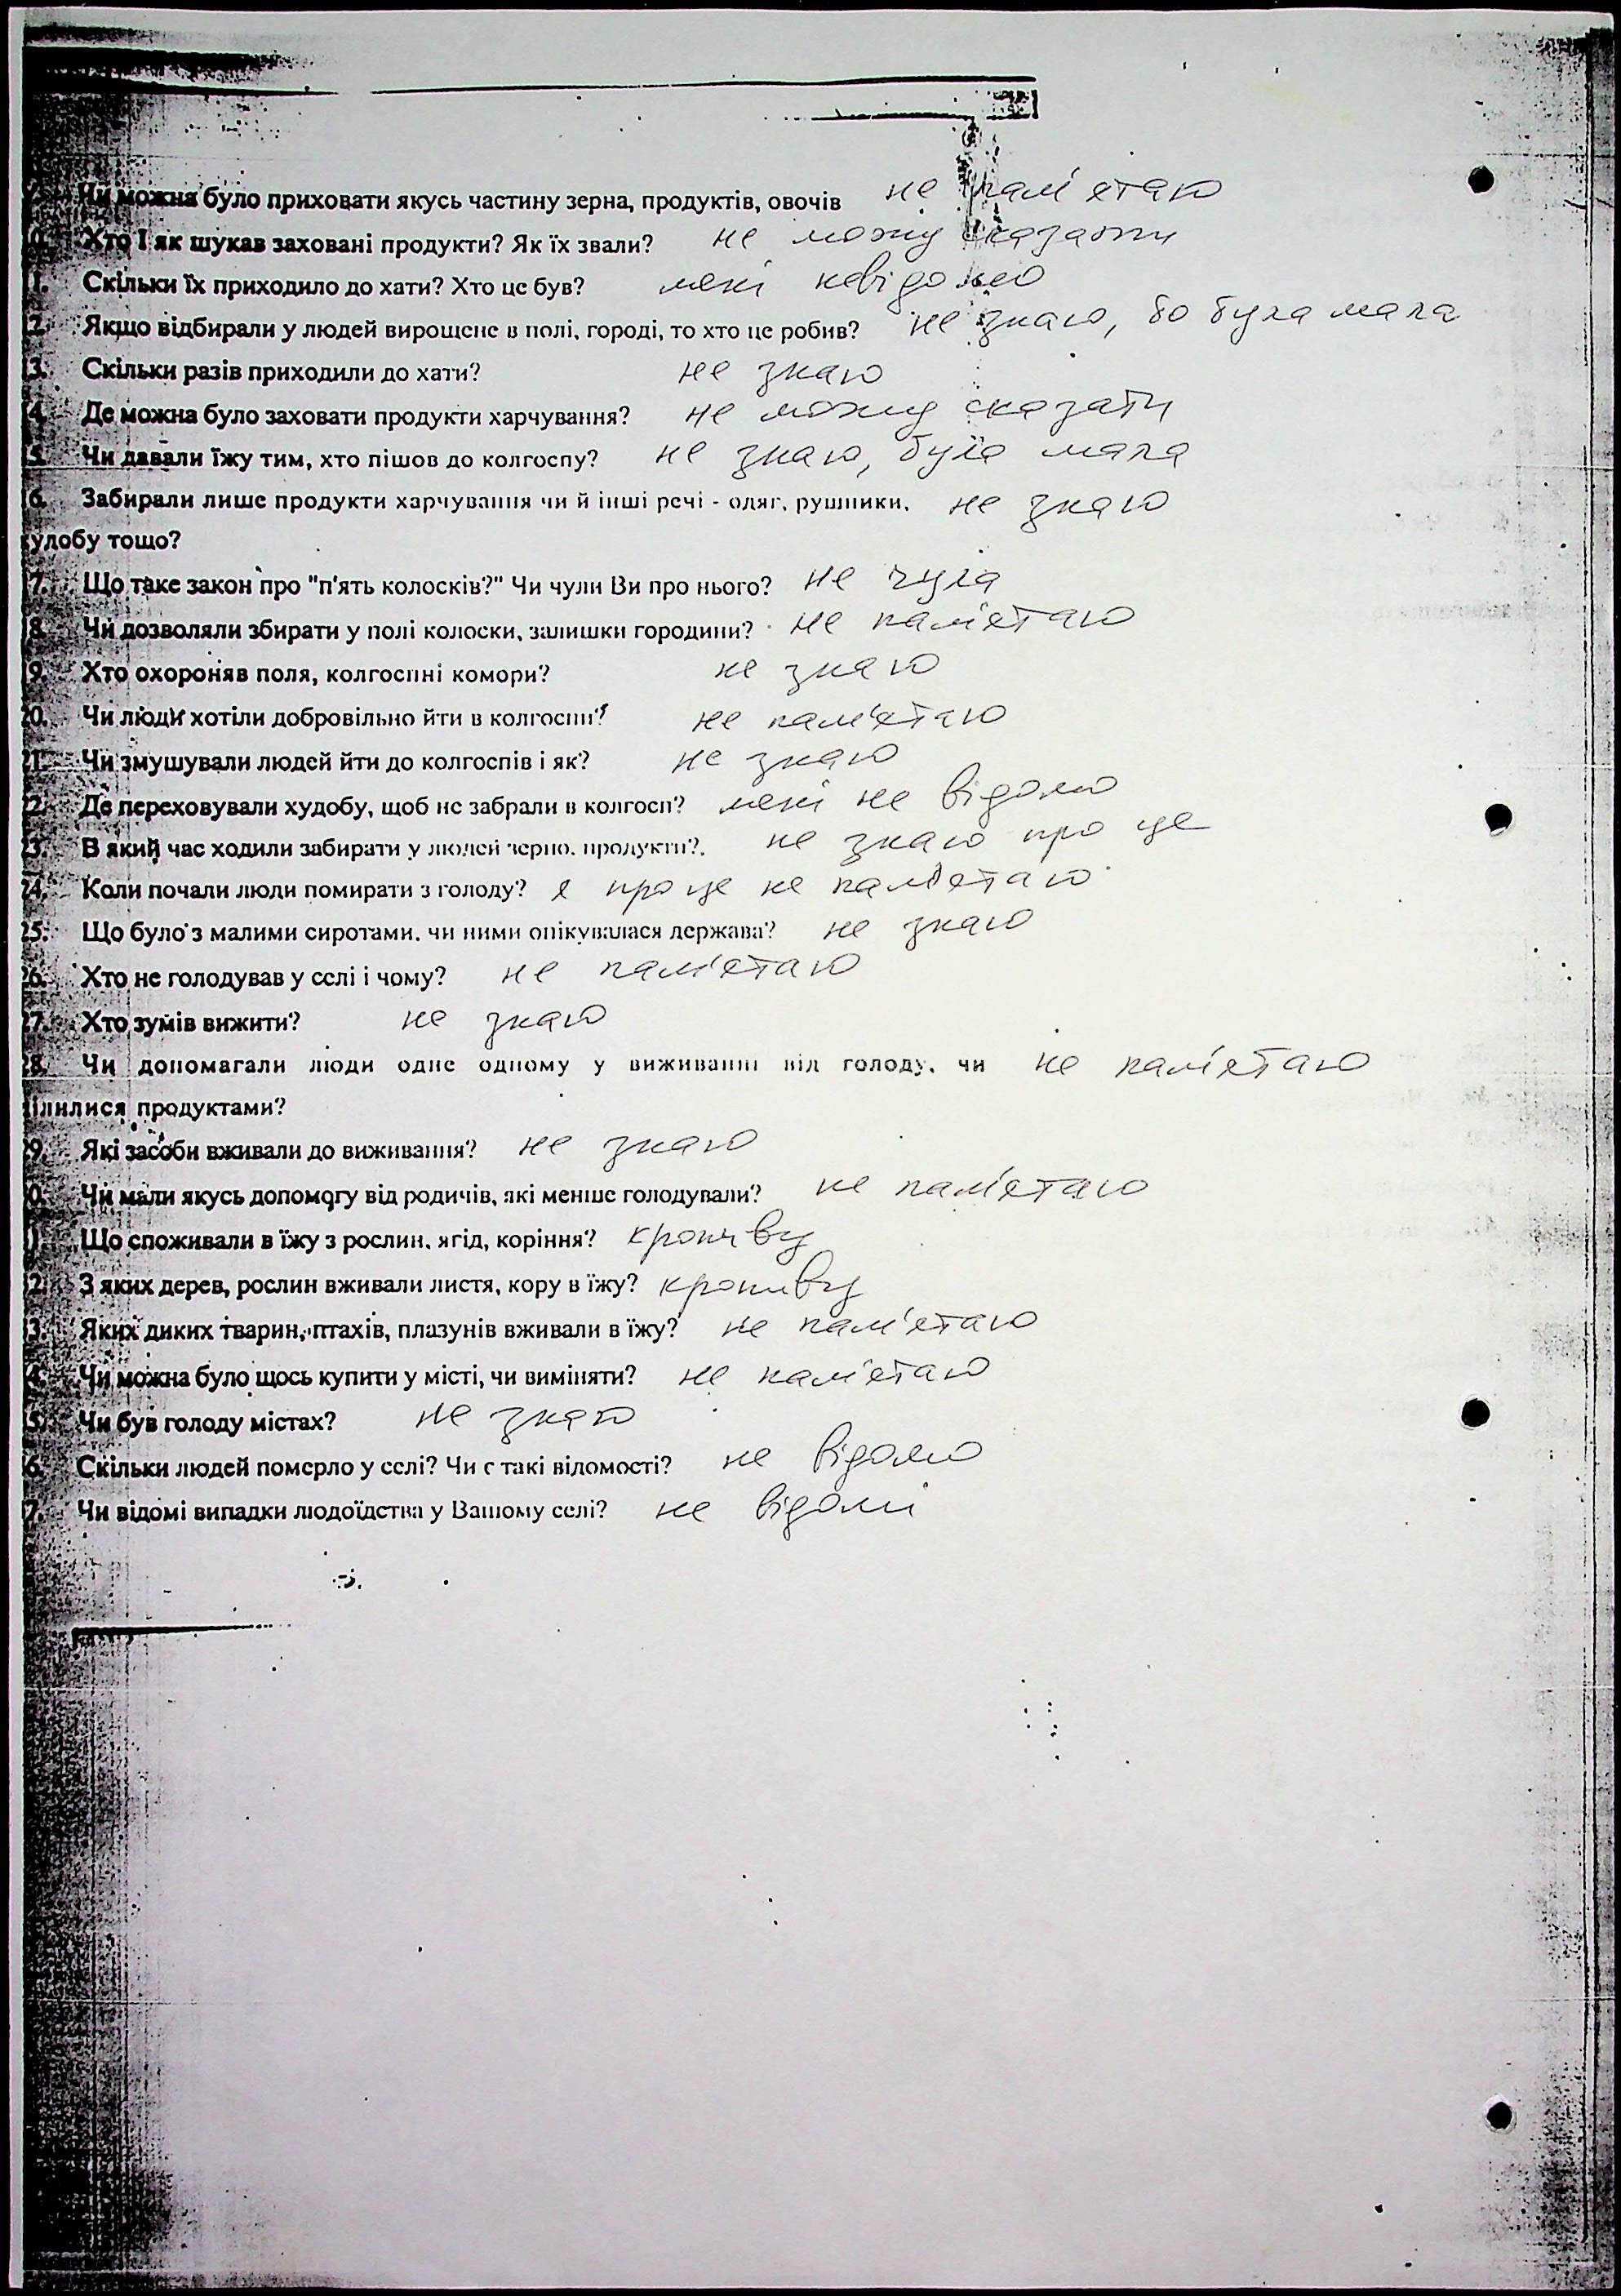 Чи можна було приховати якусь частину зерна, продуктів, овочів не пам'ятаю
Хто і як шукав заховані продукти? Як їх звали? не можу сказати
1. Скільки їх приходило до хати? Хто це був? мені невідомо
2. Якщо відбирали у людей вирощене в полі, городі, то хто це робив? не знаю, бо була мала
3. Скільки разів приходили до хати? не знаю
4. Де можна було заховати продукти харчування? не можу сказати
5. Чи давали їжу тим, хто пішов до колгоспу? не знаю, була мала
6. Забирали лише продукти харчування чи й інші речі - одяг, рушники, не знаю
худобу тощо?
7. Що таке закон про "п'ять колосків?" Чи чули Ви про нього? не чула
8. Чи дозволяли збирати у полі колоски, залишки городини? не пам'ятаю
9. Хто охороняв поля, колгоспні комори? не знаю
20. Чи люди хотіли добровільно йти в колгоспи? не пам'ятаю
21. Чи змушували людей йти до колгоспів і як? не знаю
22. Де переховували худобу, щоб не забрали в колгосп? мені не відомо
23. В який час ходили забирати у людей зерно, продукти?. не знаю про це
24. Коли почали люди помирати з голоду? я про це не пам'ятаю
25. Що було з малими сиротами, чи ними опікувалася держава? не знаю
26. Хто не голодував у селі і чому? не пам'ятаю
27. Хто зумів вижити? не знаю
28. Чи допомагали люди одне одному у виживанні від голоду, чи не пам'ятаю
ділилися продуктами?
29. Які засоби вживали до виживання? не знаю
0. Чи мали якусь допомогу від родичів, які менше голодували? не пам'ятаю
1. Що споживали в їжу з рослин, ягід, коріння? кропиву
2. З яких дерев, рослин вживали листя, кору в їжу? кропиву
3. Яких диких тварин, птахів, плазунів вживали в їжу? не пам'ятаю
4. Чи можна було щось купити у місті, чи виміняти? не пам'ятаю
5. Чи був голоду містах? не знаю
6. Скільки людей померло у селі? Чи є такі відомості? не відомо
7. Чи відомі випадки людоїдства у Вашому селі? не відомі